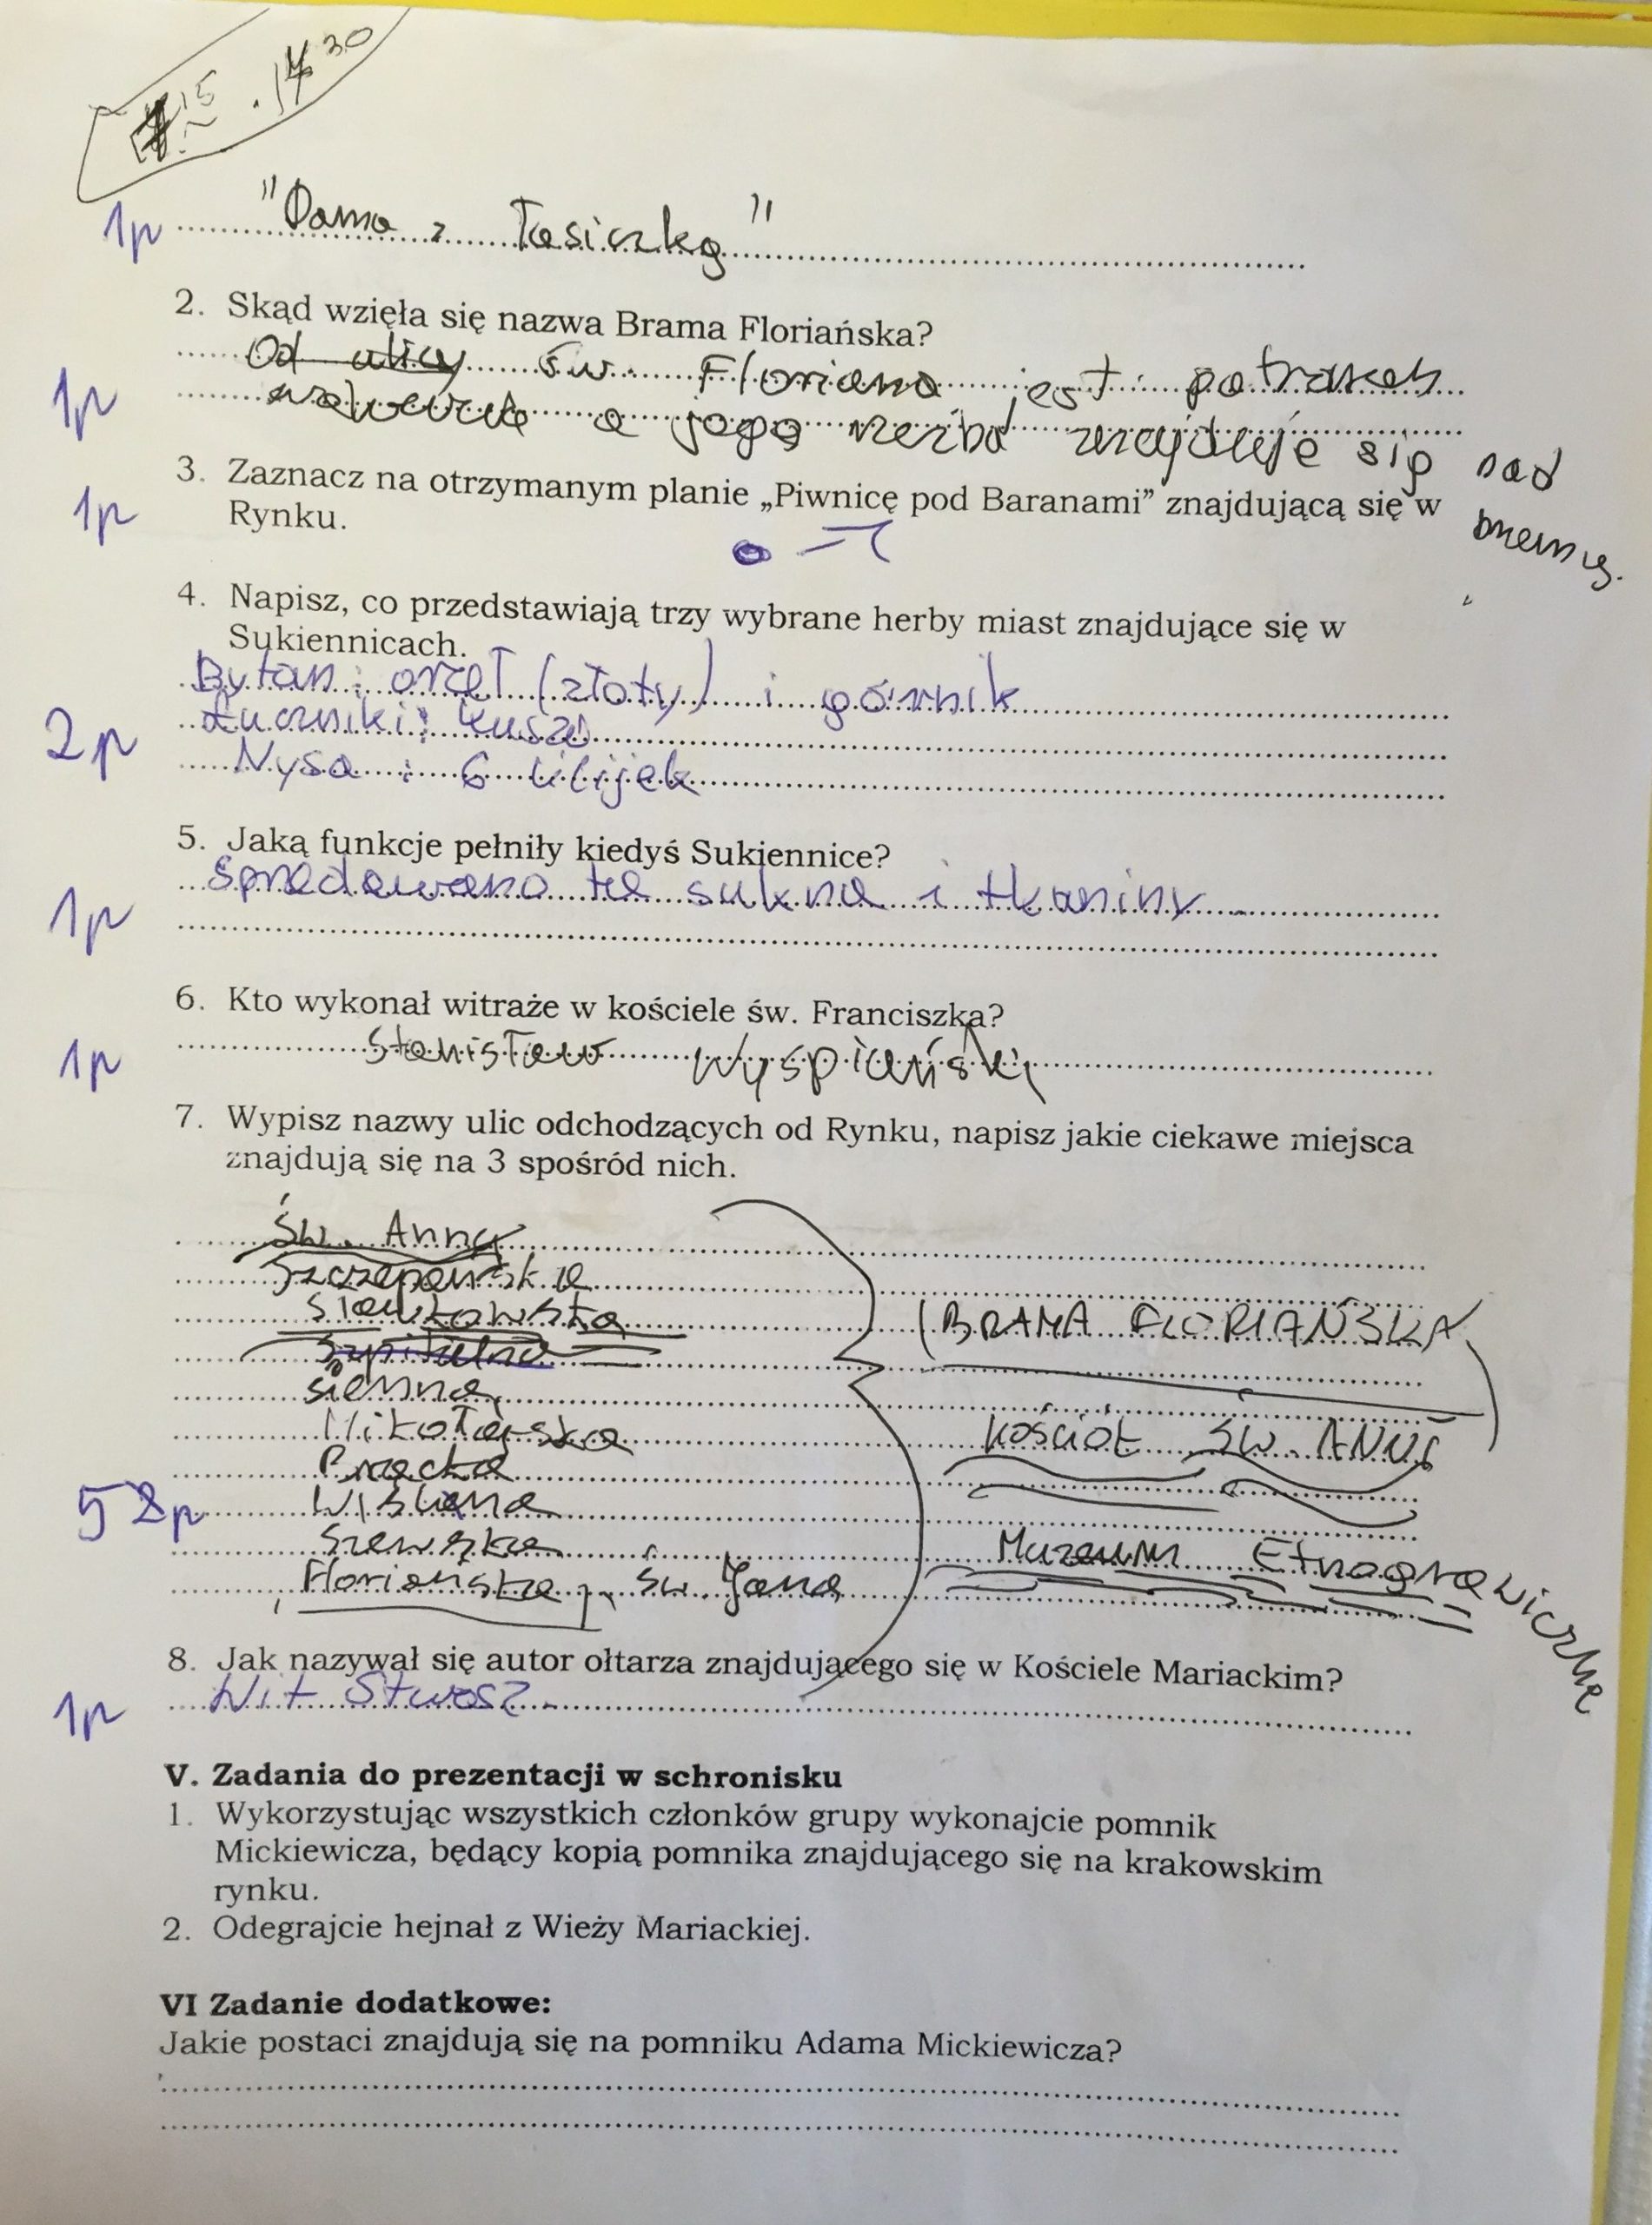 15 . 14 30
1p "Dama z Łasiczką"
2. Skąd wzięła się nazwa Brama Floriańska?
Od ulicy św. Floriana jest patronem
1p a jego rzeźba znajduje się nad
bramą.
3. Zaznacz na otrzymanym planie „Piwnicę pod Baranami” znajdującą się w
1p Rynku.
4. Napisz, co przedstawiają trzy wybrane herby miast znajdujące się w
Sukiennicach.
Bytom: orzeł (złoty) i górnik
2p kusza
Nysa: 6 lilijek
5. Jaką funkcje pełniły kiedyś Sukiennice?
Sprzedawano tu sukna i tkaniny
1p
6. Kto wykonał witraże w kościele św. Franciszka?
1p Stanisław Wyspiański
7. Wypisz nazwy ulic odchodzących od Rynku, napisz jakie ciekawe miejsca
znajdują się na 3 spośród nich.
Św. Anny
Szczepańska
Sławkowska (BRAMA FLORIAŃSKA)
Szpitalna
sienna
Mikołajska Kościół ŚW. ANNY
Bracka
5 8p Wiślna
Szewska Muzeum Etnograwiczne
Floriańska, św. Jana
8. Jak nazywał się autor ołtarza znajdującego się w Kościele Mariackim?
1p Wit Stwosz
V. Zadania do prezentacji w schronisku
1. Wykorzystując wszystkich członków grupy wykonajcie pomnik
Mickiewicza, będący kopią pomnika znajdującego się na krakowskim
rynku.
2. Odegrajcie hejnał z Wieży Mariackiej.
VI Zadanie dodatkowe:
Jakie postaci znajdują się na pomniku Adama Mickiewicza?